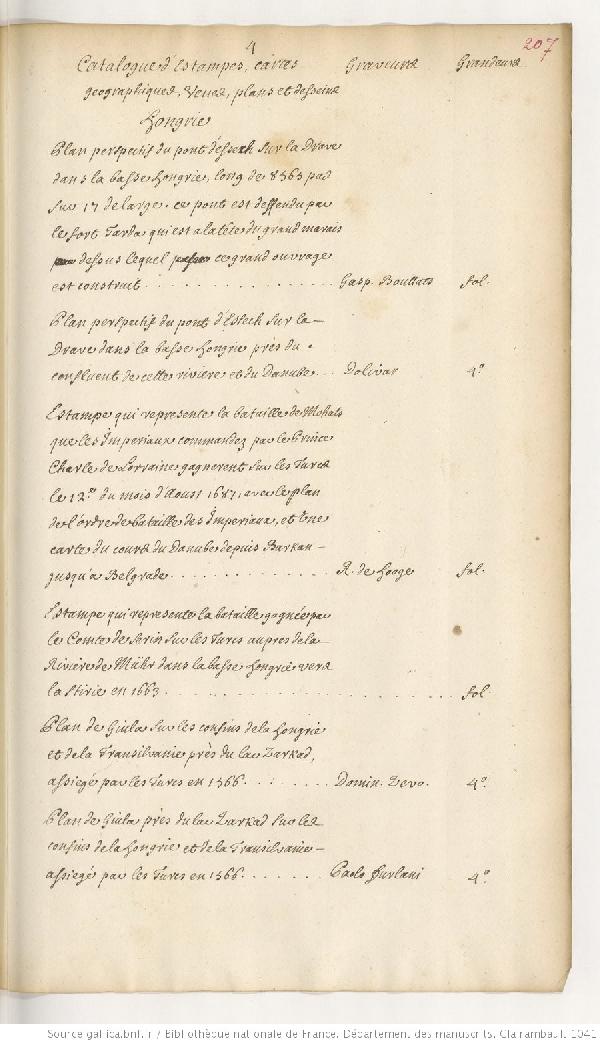 4
207
Catalogue d'Estampes, cartes Graveurs Grandeurs
geographiques, Veues, plans et desseins
Hongrie
Plan perspectif du pont d'Esseck sur la Drave
dans la basse Hongrie, long de 8565 pas
sur 17 de large. ce pont est deffendu par
le fort Tarda qui est a la tête du grand marais
dessus lequel ce grand ouvrage
est construit . . . . . . . . . . . . . . . Gasp. Bouttats fol.
Plan perspectif du pont d'Esseck sur la
Drave dans la basse Hongrie près du
confluent de cette riviere et du Danube . . . Dolivar 4°
Estampe qui represente la bataille de Mohats
que les Imperiaux commandez par le Prince
Charle de Lorraine gagnerent sur les Turcs
le 12.e du mois d'Aoust 1687, avec le plan
de l'ordre de bataille des Imperiaux, et Une
carte du cours du Danube depuis Barkan
jusqu'a Belgrade . . . . . . . . . . . . . R. de Hooge fol.
Estampe qui represente la bataille gagnée par
le Comte de Serin sur les Turcs aupres de la
Riviere de Mühr dans la basse Hongrie vers
la Stirie en 1663 . . . . . . . . . . . . . . . . . . . . . . . fol
Plan de Giula sur les confins de la Hongrie
et de la Transilvanie près du lac Zarkad,
assiegé par les Turcs en 1566 . . . . . . . . Domin. Zeno. 4°
Plan de Giula près du lac Zarkad sur les
confins de la Hongrie et de la Transilvanie
assiegé par les Turcs en 1566 . . . . . . . Paolo Furlani 4°
Source gallica.bnf.fr / Bibliothèque nationale de France. Département des manuscrits. Clairambault 1041